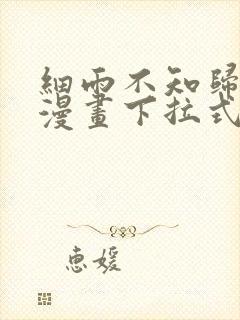 細雨不知歸
漫畫下拉式
惠媛